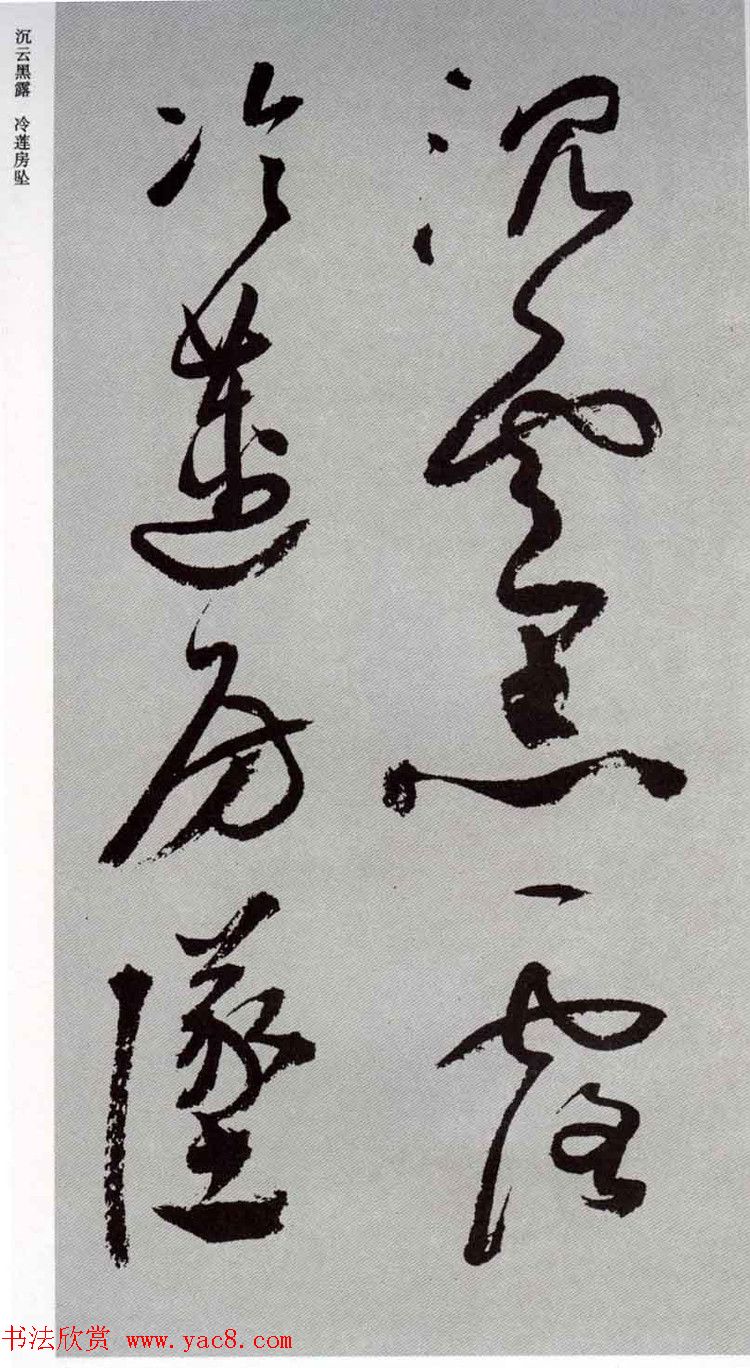 沉云黑露 冷莲房坠
沉雲黑露
冷蓮房墜
书法欣赏 www.yac8.com